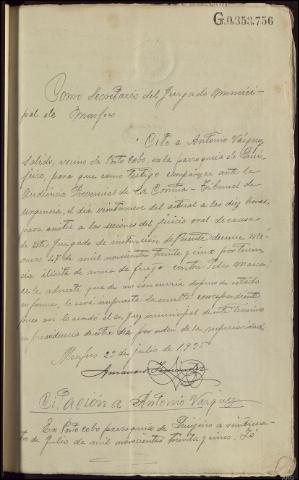 G.0.353.756
Como Secretario del Juzgado munici-
pal de Monfero
Cito a Antonio Vázquez
vecino de Porto Cobo, en la parroquia de
para que como testigo comparezca ante la
Audiencia Provincial de La Coruña - Tribunal de
urgencia, el día veintinueve del actual a las diez horas,
para asistir a las sesiones del juicio oral de causa
de este Juzgado de instrucción de Puentedeume nú-
mero 47 de mil novecientos treinta y cinco por tenen-
cia ilícita de arma de fuego contra
se le advierte que de no concurrir después de citado
en forma, le será impuesta la multa correspondiente
pues así lo acordó el Sr. Juez municipal de este término
en providencia de este día por orden de la superioridad
Monfero 22 de julio de 1935
Citación a Antonio Vázquez
En Porto cobo parroquia de a veinticua-
tro de Julio de mil novecientos treinta y cinco. Yo